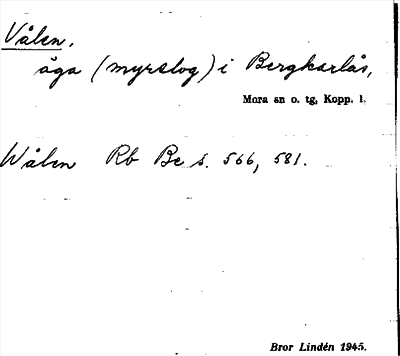 Vålen.
äga (myrslog) i Bergkarlås,
Mora sn o. tg, Kopp. l.
Wålen Rb Be s. 566, 581.
Bror Lindén 1945.